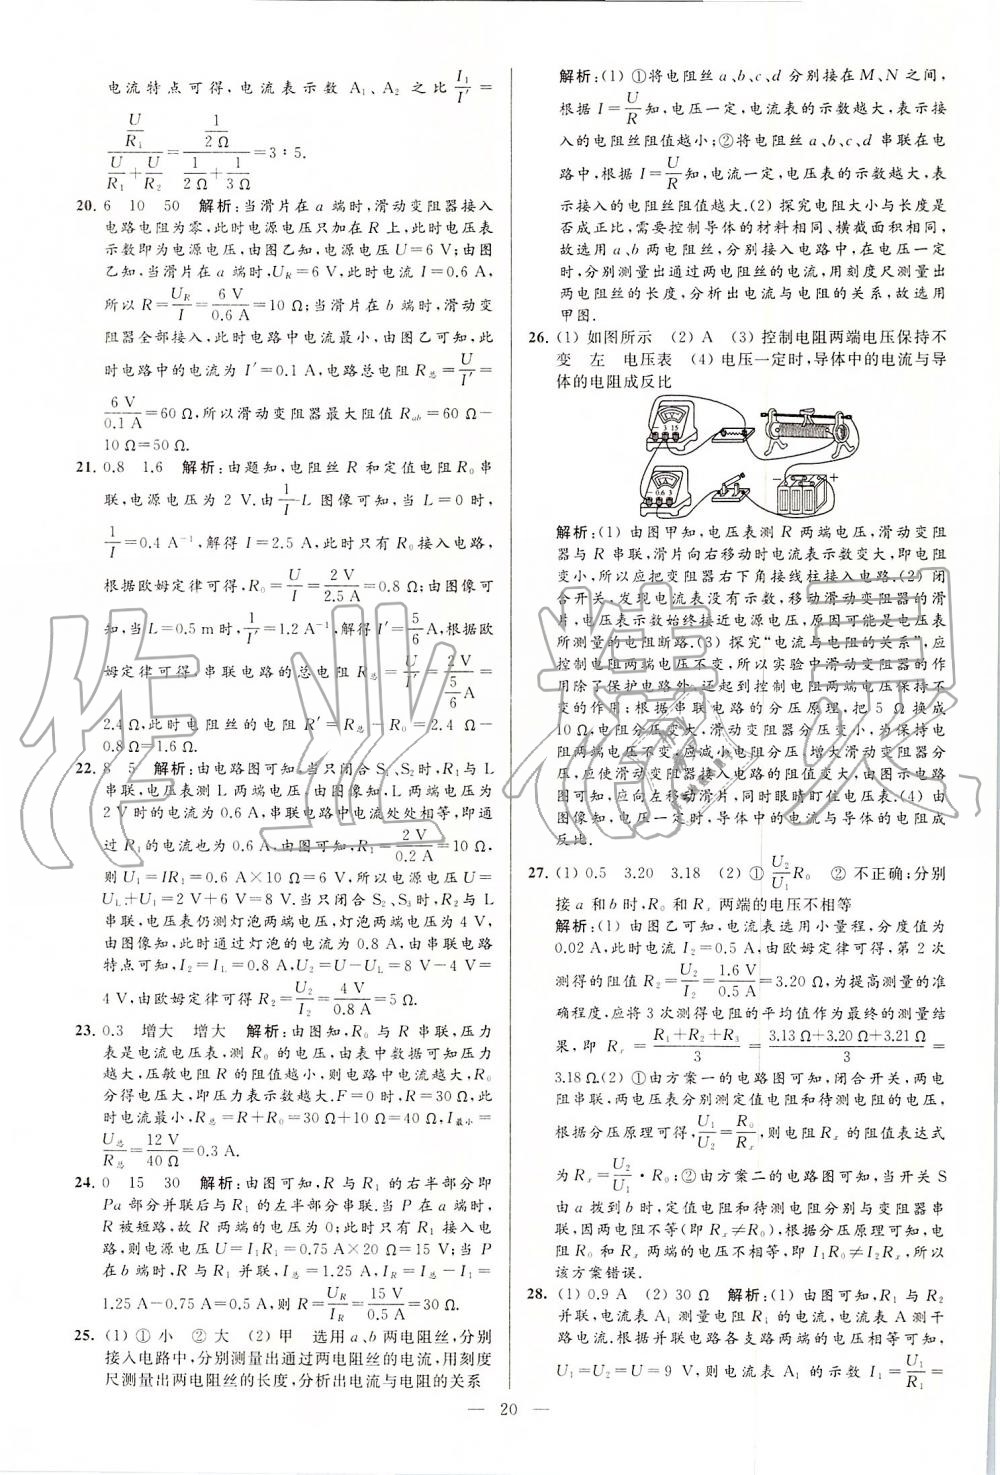 电流特点可得,电流表示数 A₁、A₂ 之比 I₁/I′ =
(U/R₁)/(U/R₁+U/R₂) = (1/2Ω)/(1/2Ω+1/3Ω) = 3∶5.
20. 6 10 50 解析:当滑片在 a 端时,滑动变阻器接入
电路电阻为零,此时电源电压只加在 R 上,此时电压表
示数即为电源电压,由图乙知,电源电压 U=6 V;由图
乙知,当滑片在 a 端时,U_R=6 V,此时电流 I=0.6 A,
所以 R=U_R/I=6 V/0.6 A=10 Ω;当滑片在 b 端时,滑动变
阻器全部接入,此时电路中电流最小,由图乙可知,此
时电路中的电流为 I′=0.1 A,电路总电阻 R总=U/I′=
6 V/0.1 A=60 Ω,所以滑动变阻器最大阻值 R_ab=60 Ω-
10 Ω=50 Ω.
21. 0.8 1.6 解析:由题知,电阻丝 R 和定值电阻 R₀ 串
联,电源电压为 2 V.由 1/I-L 图像可知,当 L=0 时,
1/I=0.4 A⁻¹,解得 I=2.5 A,此时只有 R₀ 接入电路,
根据欧姆定律可得,R₀=U/I=2 V/2.5 A=0.8 Ω;由图像可
知,当 L=0.5 m 时,1/I′=1.2 A⁻¹,解得 I′=5/6 A,根据欧
姆定律可得,串联电路的总电阻 R总=U/I′=2 V/(5/6 A)=
2.4 Ω,此时电阻丝的电阻 R′=R总-R₀=2.4 Ω-
0.8 Ω=1.6 Ω.
22. 8 5 解析:由电路图可知,当只闭合 S₁、S₂ 时,R₁ 与 L
串联,电压表测 L 两端电压,由图像知,L 两端电压为
2 V 时的电流为 0.6 A,串联电路中电流处处相等,即通
过 R₁ 的电流也为 0.6 A,由图可知,R₁=2 V/0.2 A=10 Ω,
则 U₁=IR₁=0.6 A×10 Ω=6 V,所以电源电压 U=
U_L+U₁=2 V+6 V=8 V.当只闭合 S₂、S₃ 时,R₂ 与 L
串联,电压表仍测灯泡两端电压,灯泡两端电压为 4 V,
由图像知,此时通过灯泡的电流为 0.8 A,由串联电路
特点可知,I₂=I_L=0.8 A,U₂=U-U_L=8 V-4 V=
4 V,由欧姆定律可得 R₂=U₂/I₂=4 V/0.8 A=5 Ω.
23. 0.3 增大 增大 解析:由图知,R₀ 与 R 串联,压力
表是电流电压表,测 R₀ 的电压,由表中数据可知压力
越大,压敏电阻 R 的阻值越小,则电路中电流越大,R₀
分得电压大,即压力表示数越大.F=0 时,R=30 Ω,此
时电流最小,R总=R+R₀=30 Ω+10 Ω=40 Ω,I最小=
U总/R总=12 V/40 Ω=0.3 A.
24. 0 15 30 解析:由图可知,R 与 R₁ 的右半部分即
Pa 部分并联后与 R₁ 的左半部分串联.当 P 在 a 端时,
R 被短路,故 R 两端的电压为 0;此时只有 R₁ 接入电
路,则电源电压 U=I₁R₁=0.75 A×20 Ω=15 V;当 P
在 b 端时,R 与 R₁ 并联,I总=1.25 A,I_R=I总-I₁=
1.25 A-0.75 A=0.5 A,则 R=U_R/I_R=15 V/0.5 A=30 Ω.
25. (1) ① 小 ② 大 (2) 甲 选用 a、b 两电阻丝,分别
接入电路中,分别测量出通过两电阻丝的电流,用刻度
尺测量出两电阻丝的长度,分析出电流与电阻的关系
解析:(1) ①将电阻丝 a、b、c、d 分别接在 M、N 之间,
根据 I=U/R 知,电压一定,电流表的示数越大,表示接
入的电阻丝阻值越小;②将电阻丝 a、b、c、d 串联在电
路中,根据 I=U/R 知,电流一定,电压表的示数越大,表
示接入的电阻丝阻值越大.(2) 探究电阻大小与长度是
否成正比,需要控制导体的材料相同、横截面积相同,
故选用 a、b 两电阻丝,分别接入电路中,在电压一定
时,分别测量出通过两电阻丝的电流,用刻度尺测量出
两电阻丝的长度,分析出电流与电阻的关系,故选用
甲图.
26. (1) 如图所示 (2) A (3) 控制电阻两端电压保持不
变 左 电压表 (4) 电压一定时,导体中的电流与导
体的电阻成反比
- 3 15
- 0.6 3
- +
解析:(1) 由图甲知,电压表测 R 两端电压,滑动变阻
器与 R 串联,滑片向右移动时电流表示数变大,即电阻
变小,所以应把变阻器右下角接线柱接入电路.(2) 闭
合开关,发现电流表没有示数,移动滑动变阻器的滑
片,电压表示数始终接近电源电压,原因可能是电压表
所测量的电阻断路.(3) 探究“电流与电阻的关系”,应
控制电阻两端电压不变,所以实验中滑动变阻器的作
用除了保护电路外,还起到控制电阻两端电压保持不
变的作用;根据串联电路的分压原理,把 5 Ω 换成
10 Ω,电阻分压变大,滑动变阻器分压变小,为保持电
阻两端电压不变,应减小电阻分压,增大滑动变阻器分
压,应使滑动变阻器接入电阻的阻值变大,由图示电路
图可知,应向左移动滑片,同时眼睛盯住电压表.(4) 由
图像知,电压一定时,导体中的电流与导体的电阻成
反比.
27. (1) 0.5 3.20 3.18 (2) ① U₂/U₁ R₀ ② 不正确:分别
接 a 和 b 时,R₀ 和 Rₓ 两端的电压不相等
解析:(1) 由图乙可知,电流表选用小量程,分度值为
0.02 A,此时电流 I₂=0.5 A,由欧姆定律可得,第 2 次
测得的阻值 R₂=U₂/I₂=1.6 V/0.5 A=3.20 Ω,为提高测量的准
确程度,应将 3 次测得电阻的平均值作为最终的测量结
果,即 Rₓ=(R₁+R₂+R₃)/3=(3.13 Ω+3.20 Ω+3.21 Ω)/3=
3.18 Ω.(2) ①由方案一的电路图可知,闭合开关,两电
阻串联,两电压表分别测定值电阻和待测电阻的电压,
根据分压原理可得,U₁/U₂=R₀/Rₓ,则电阻 Rₓ 的阻值表达式
为 Rₓ=U₂/U₁·R₀;②由方案二的电路图可知,当开关 S
由 a 拨到 b 时,定值电阻和待测电阻分别与变阻器串
联,因两电阻不等(即 Rₓ≠R₀),根据分压原理可知,定
值电阻 R₀ 和 Rₓ 两端的电压不相等,即 I₁R₀≠I₂Rₓ,所以
该方案错误.
28. (1) 0.9 A (2) 30 Ω 解析:(1) 由图可知,R₁ 与 R₂
并联,电流表 A₁ 测量电阻 R₁ 的电流,电流表 A 测干
路电流.根据并联电路各支路两端的电压相等可知,
U₁=U₂=U=9 V,则电流表 A₁ 的示数 I₁=U₁/R₁=
— 20 —
作业精灵